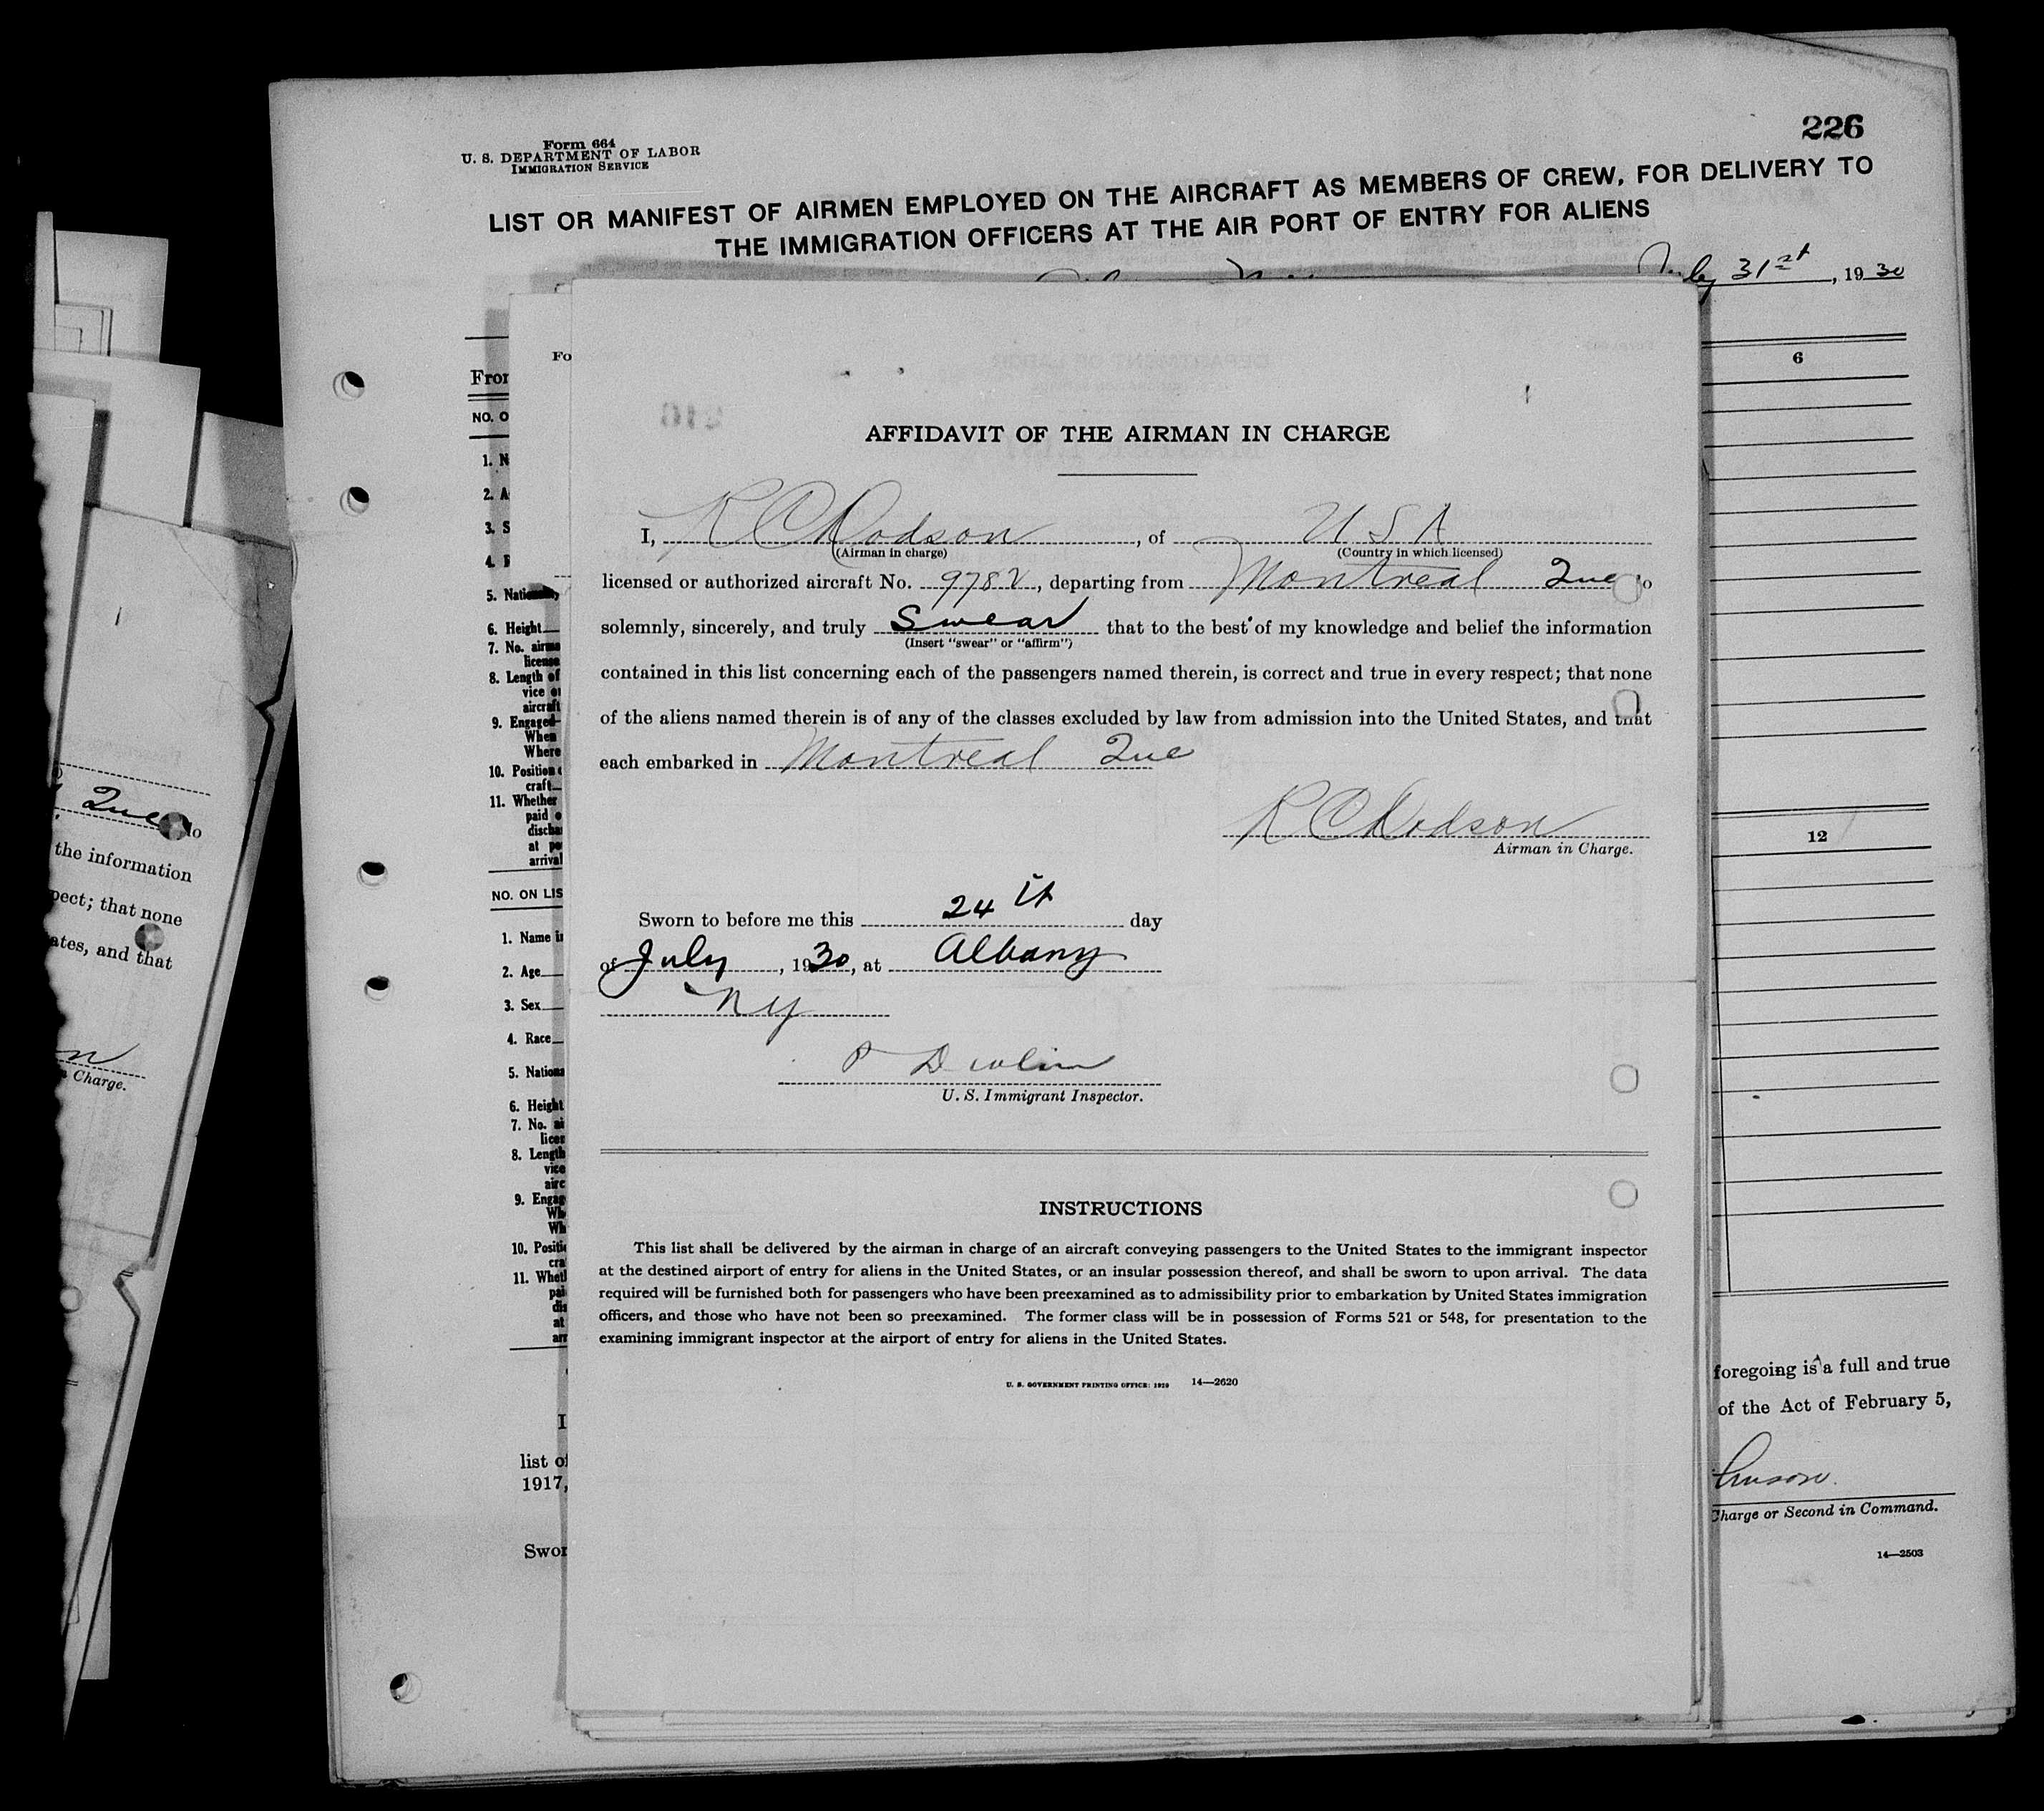 Form 664
U. S. DEPARTMENT OF LABOR
IMMIGRATION SERVICE
226
LIST OR MANIFEST OF AIRMEN EMPLOYED ON THE AIRCRAFT AS MEMBERS OF CREW, FOR DELIVERY TO
THE IMMIGRATION OFFICERS AT THE AIR PORT OF ENTRY FOR ALIENS
July 31st, 1930
Fo
From
NO. O
1. N
2. A
3. S
4.
5. Nationality
6. Height
7. No. airma
license
8. Length of
vice or
aircraft
9. Engaged
When
Where
10. Position
craft
11. Whether
paid o
discha
at po
arrival
NO. ON LIS
1. Name i
2. Age
3. Sex
4. Race
5. Nationa
6. Height
7. No. ai
licen
8. Length
vice
airc
9. Engag
Wh
Wh
10. Positi
cra
11. Whet
pai
dis
at
arr
list of
1917,
Swor
6
12
foregoing is a full and true
of the Act of February 5,
Charge or Second in Command.
14—2503
AFFIDAVIT OF THE AIRMAN IN CHARGE
I, R C Dodson, of U S A
(Airman in charge) (Country in which licensed)
licensed or authorized aircraft No. 978V, departing from Montreal Que do
solemnly, sincerely, and truly Swear that to the best of my knowledge and belief the information
(Insert "swear" or "affirm")
contained in this list concerning each of the passengers named therein, is correct and true in every respect; that none
of the aliens named therein is of any of the classes excluded by law from admission into the United States, and that
each embarked in Montreal Que
R C Dodson
Airman in Charge.
Sworn to before me this 24th day
of July, 1930, at Albany
NY
P Devlin
U. S. Immigrant Inspector.
INSTRUCTIONS
This list shall be delivered by the airman in charge of an aircraft conveying passengers to the United States to the immigrant inspector
at the destined airport of entry for aliens in the United States, or an insular possession thereof, and shall be sworn to upon arrival. The data
required will be furnished both for passengers who have been preexamined as to admissibility prior to embarkation by United States immigration
officers, and those who have not been so preexamined. The former class will be in possession of Forms 521 or 548, for presentation to the
examining immigrant inspector at the airport of entry for aliens in the United States.
U. S. GOVERNMENT PRINTING OFFICE: 1929 14—2620
Que do
the information
pect; that none
ates, and that
Charge.